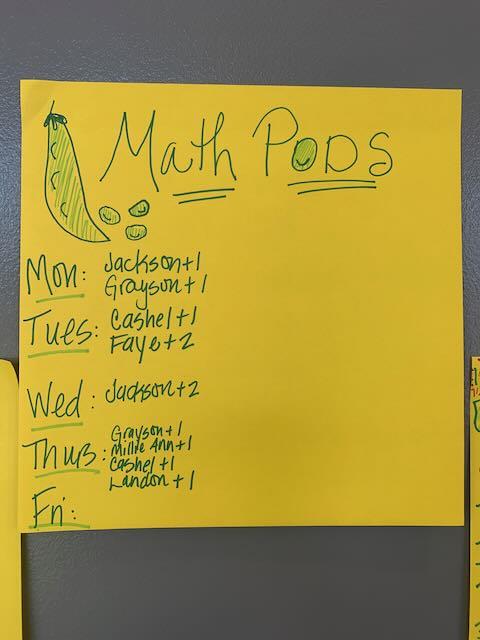 Math PODS
Mon: Jackson+1
Grayson+1
Tues: Cashel+1
Faye+2
Wed: Jackson+2
Thurs: Grayson+1
Millie Ann+1
Cashel+1
Landon+1
Fri: